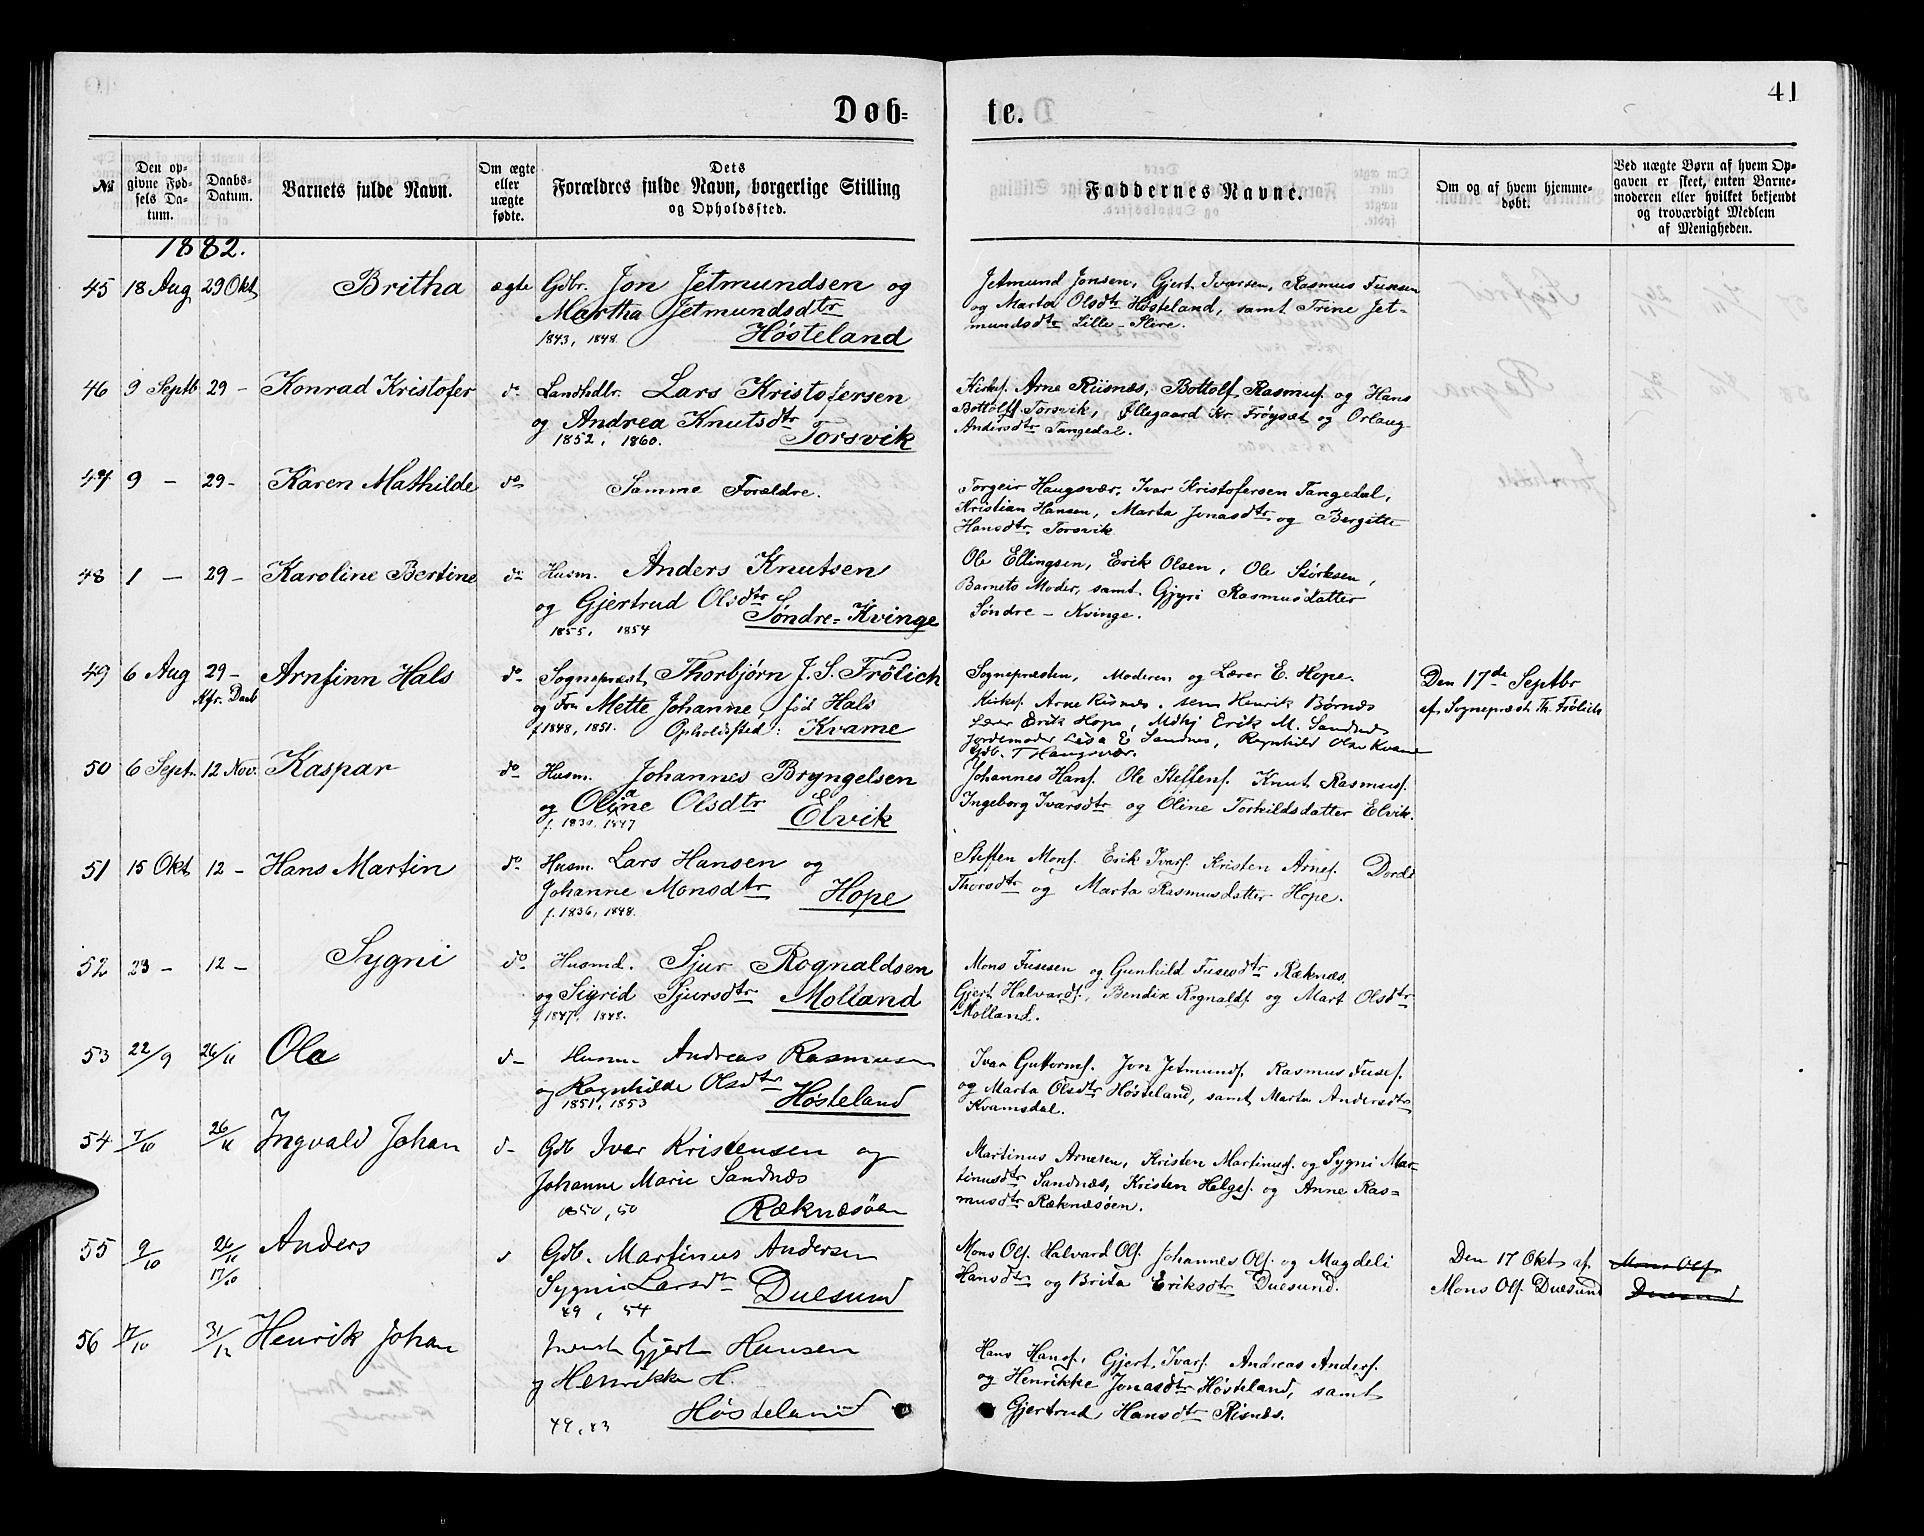 41
Døb= te.
№
Den op-
givne Fød-
sels Da-
tum.
Daabs-
Datum.
Barnets fulde Navn.
Om ægte
eller
uægte
fødte.
Dets
Forældres fulde Navn, borgerlige Stilling
og Opholdssted.
Faddernes Navne.
Om og af hvem hjemme-
døbt.
Ved uægte Børn af hvem Op-
gaven er skeet, enten Barne-
moderen eller hvilket bekjendt
og troværdigt Medlem
af Menigheden.
1882.
45 18 Aug 29 Okt Britha ægte Gdbr. Jon Jetmundsen og
Martha Jetmundsdtr
1843, 1848. Høsteland
Jetmund Jonsen, Gjert Ivarsen, Rasmus Fusesen
og Marta Olsdtr Høsteland, samt Trine Jet-
mundsdtr Lille-Slire.
46 9 Septb 29 - Konrad Kristofer do Landhdlr. Lars Kristofersen
og Andrea Knutsdtr
1852, 1860. Torsvik
Kirkes. Arne Riisnæs, Bottolf Rasmus. og Hans
Bottolfs. Torsvik, Ellegaard Kr. Frøyset og Orlaug
Andersdtr Tangedal.
47 9 - 29 - Karen Mathilde do Samme Forældre.
Torgeir Haugsvær, Ivar Kristofersen Tangedal,
Kristian Hansen, Marta Jonasdtr og Bergitte
Hansdtr. Torsvik
48 1 - 29 - Karoline Bertine do Husm. Anders Knutsen
og Gjertrud Olsdtr
1855, 1854 Søndre=Kvinge
Ole Ellingsen, Erik Olsen, Ole Størksen,
Barnets Moder, samt Gjyri Rasmusdatter
Søndre - Kvinge.
49 6 Aug 29 - Arnfinn Hals do Sognepræst Thorbjørn J. S. Frölich
Kfr. Daab
og Fru Mette Johanne, fød Hals
f. 1848, 1851. Opholdssted: Kvame
Sognepræsten, Moderen og Lærer E. Hope.
Kirkes. Arne Risnæs, sem Henrik Børnæs
Lærer Erik Hope, Mdhj Erik M. Sandnes
Jordemoder Lisa E. Sandnes, Ragnhild Olsd Kvame
Gdb. T Haugsvær.
Den 17de Septbr
af Sognepræst Th. Frölich
50 6 Sept. 12 Nov. Kaspar do Husm. Johannes Bryngelsen
og Oline Olsdtr
f. 1830, 1847 Elvik
Johannes Hans. Ole Steffens. Knut Rasmus.
Ingeborg Ivarsdtr og Oline Torkildsdatter Elvik.
51 15 Okt 12 - Hans Martin do Husm. Lars Hansen og
Johanne Monsdtr
f. 1836, 1848. Hope
Steffen Mons. Erik Ivars. Kristen Arnes. Dorde
Thorsdtr og Marta Rasmusdatter Hope.
52 23 - 12 - Sygni do Husmd. Sjur Rognaldsen
og Sigrid Sjursdtr Molland
f. 1847, 1848.
Mons Fusesen og Gunhild Fusesdtr Ræknæs,
Gjert Halvards., Bendix Rognalds. og Mart Olsdtr
Molland.
53 22/9 26/11 Ola d- Husm. Andreas Rasmusen
og Ragnhilde Olsdtr
1851, 1853 Høsteland
Ivar Guttorms. Jon Jetmunds. Rasmus Fuses.
og Marta Olsdtr Høsteland, samt Marta Andersdtr
Kvamsdal.
54 7/10 26/11 Ingvald Johan d- Gdb Iver Kristensen og
Johanne Marie Sandnæs
1850, 50 Ræknæsøen
Martinus Arnesen, Kristen Martinus. og Sygni Mar-
tinusdtr Sandnæs, Kristen Helges. og Anne Ras=
musdtr Ræknæsøen.
55 9/10 26/11 Anders d Gdb. Martinus Andersen
17/10
Sygni Larsdtr Duesund
49, 54
Mons Ols. Halvard Ols. Johannes Ols. og Magdeli
Hansdtr og Brita Eriksdtr Duesund.
Den 17 Okt af
Mons Ols. Duesund
Mons Ols.
Duesund
56 17/10 31/12 Henrik Johan Gjert Hansen
og Henrikke H.
49, 53 Høsteland
Hans Hans., Gjert Ivars. Andreas Anders.
og Henrikke Jonasdtr Høsteland, samt
Gjertrud Hansdtr Risnæs.